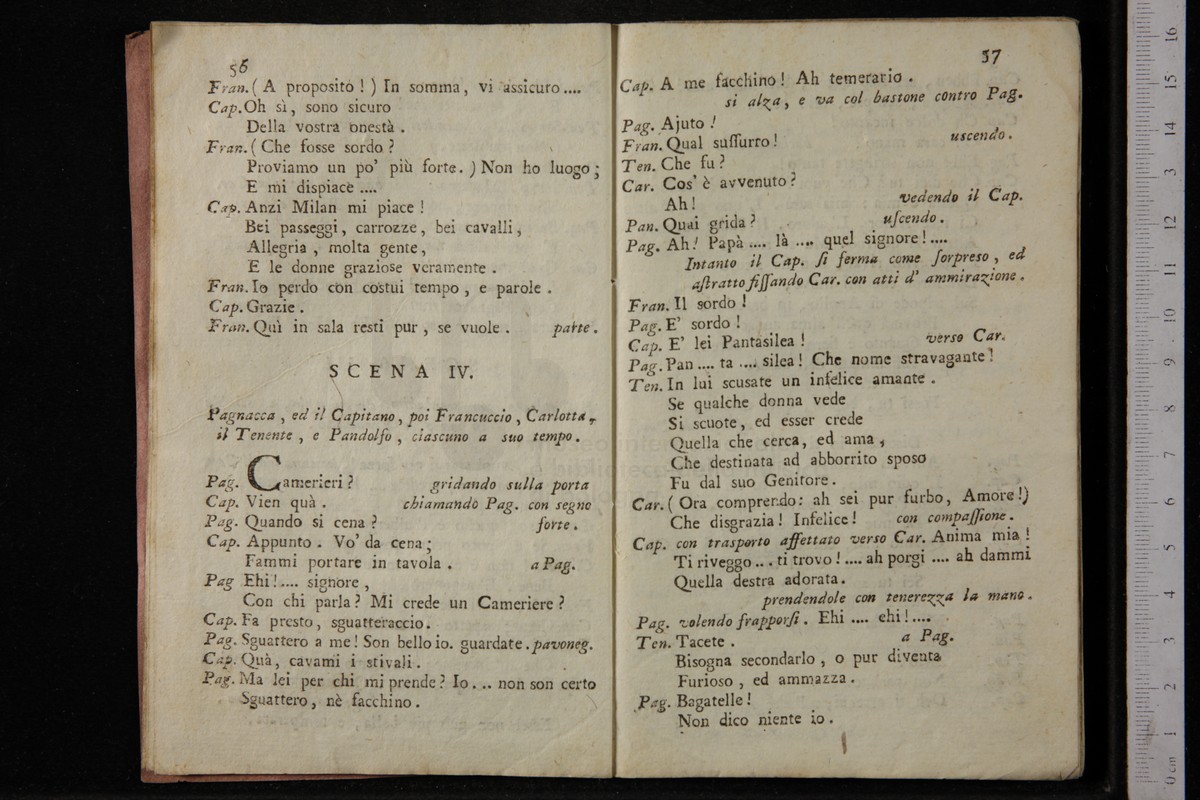 56
Fran. ( A proposito ! ) In somma, vi assicuro....
Cap. Oh sì, sono sicuro
Della vostra onestà .
Fran. ( Che fosse sordo ?
Proviamo un po' più forte. ) Non ho luogo ;
E mi dispiace ....
Cap. Anzi Milan mi piace !
Bei passeggi, carrozze, bei cavalli,
Allegria , molta gente,
E le donne graziose veramente .
Fran. Io perdo con costui tempo , e parole .
Cap. Grazie .
Fran. Quì in sala resti pur , se vuole . parte .
SCENA IV.
Pagnacca , ed il Capitano, poi Francuccio , Carlotta ,
il Tenente , e Pandolfo , ciascuno a suo tempo .
Pag. Camerieri ? gridando sulla porta
Cap. Vien quà . chiamando Pag. con segno
Pag. Quando si cena ? forte .
Cap. Appunto . Vo' da cena ;
Fammi portare in tavola . a Pag.
Pag Ehi !.... signore ,
Con chi parla ? Mi crede un Cameriere ?
Cap. Fa presto, sguatteraccio.
Pag. Sguattero a me ! Son bello io. guardate . pavoneg.
Cap. Quà, cavami i stivali .
Pag. Ma lei per chi mi prende ? Io ... non son certo
Sguattero, nè facchino .
57
Cap. A me facchino ! Ah temerario .
si alza , e va col bastone contro Pag.
Pag. Ajuto !
Fran. Qual suſſurro ! uscendo .
Ten. Che fu ?
Car. Cos' è avvenuto ?
Ah ! vedendo il Cap.
Pan. Quai grida ? uſcendo .
Pag. Ah ! Papà .... là .... quel signore !....
Intanto il Cap. ſi ferma come ſorpreso , ed
aſtratto fiſſando Car. con atti d' ammirazione .
Fran. Il sordo !
Pag. E' sordo !
Cap. E' lei Pantasilea ! verso Car.
Pag. Pan .... ta .... silea ! Che nome stravagante !
Ten. In lui scusate un infelice amante .
Se qualche donna vede
Si scuote, ed esser crede
Quella che cerca, ed ama ,
Che destinata ad abborrito sposo
Fu dal suo Genitore .
Car. ( Ora comprendo : ah sei pur furbo, Amore !)
Che disgrazia ! Infelice ! con compaſſione .
Cap. con trasporto affettato verso Car. Anima mia !
Ti riveggo ... ti trovo !.... ah porgi .... ah dammi
Quella destra adorata .
prendendole con tenerezza la mano .
Pag. volendo frapporſi . Ehi .... ehi !....
Ten. Tacete . a Pag.
Bisogna secondarlo , o pur diventa
Furioso , ed ammazza .
Pag. Bagatelle !
Non dico niente io .